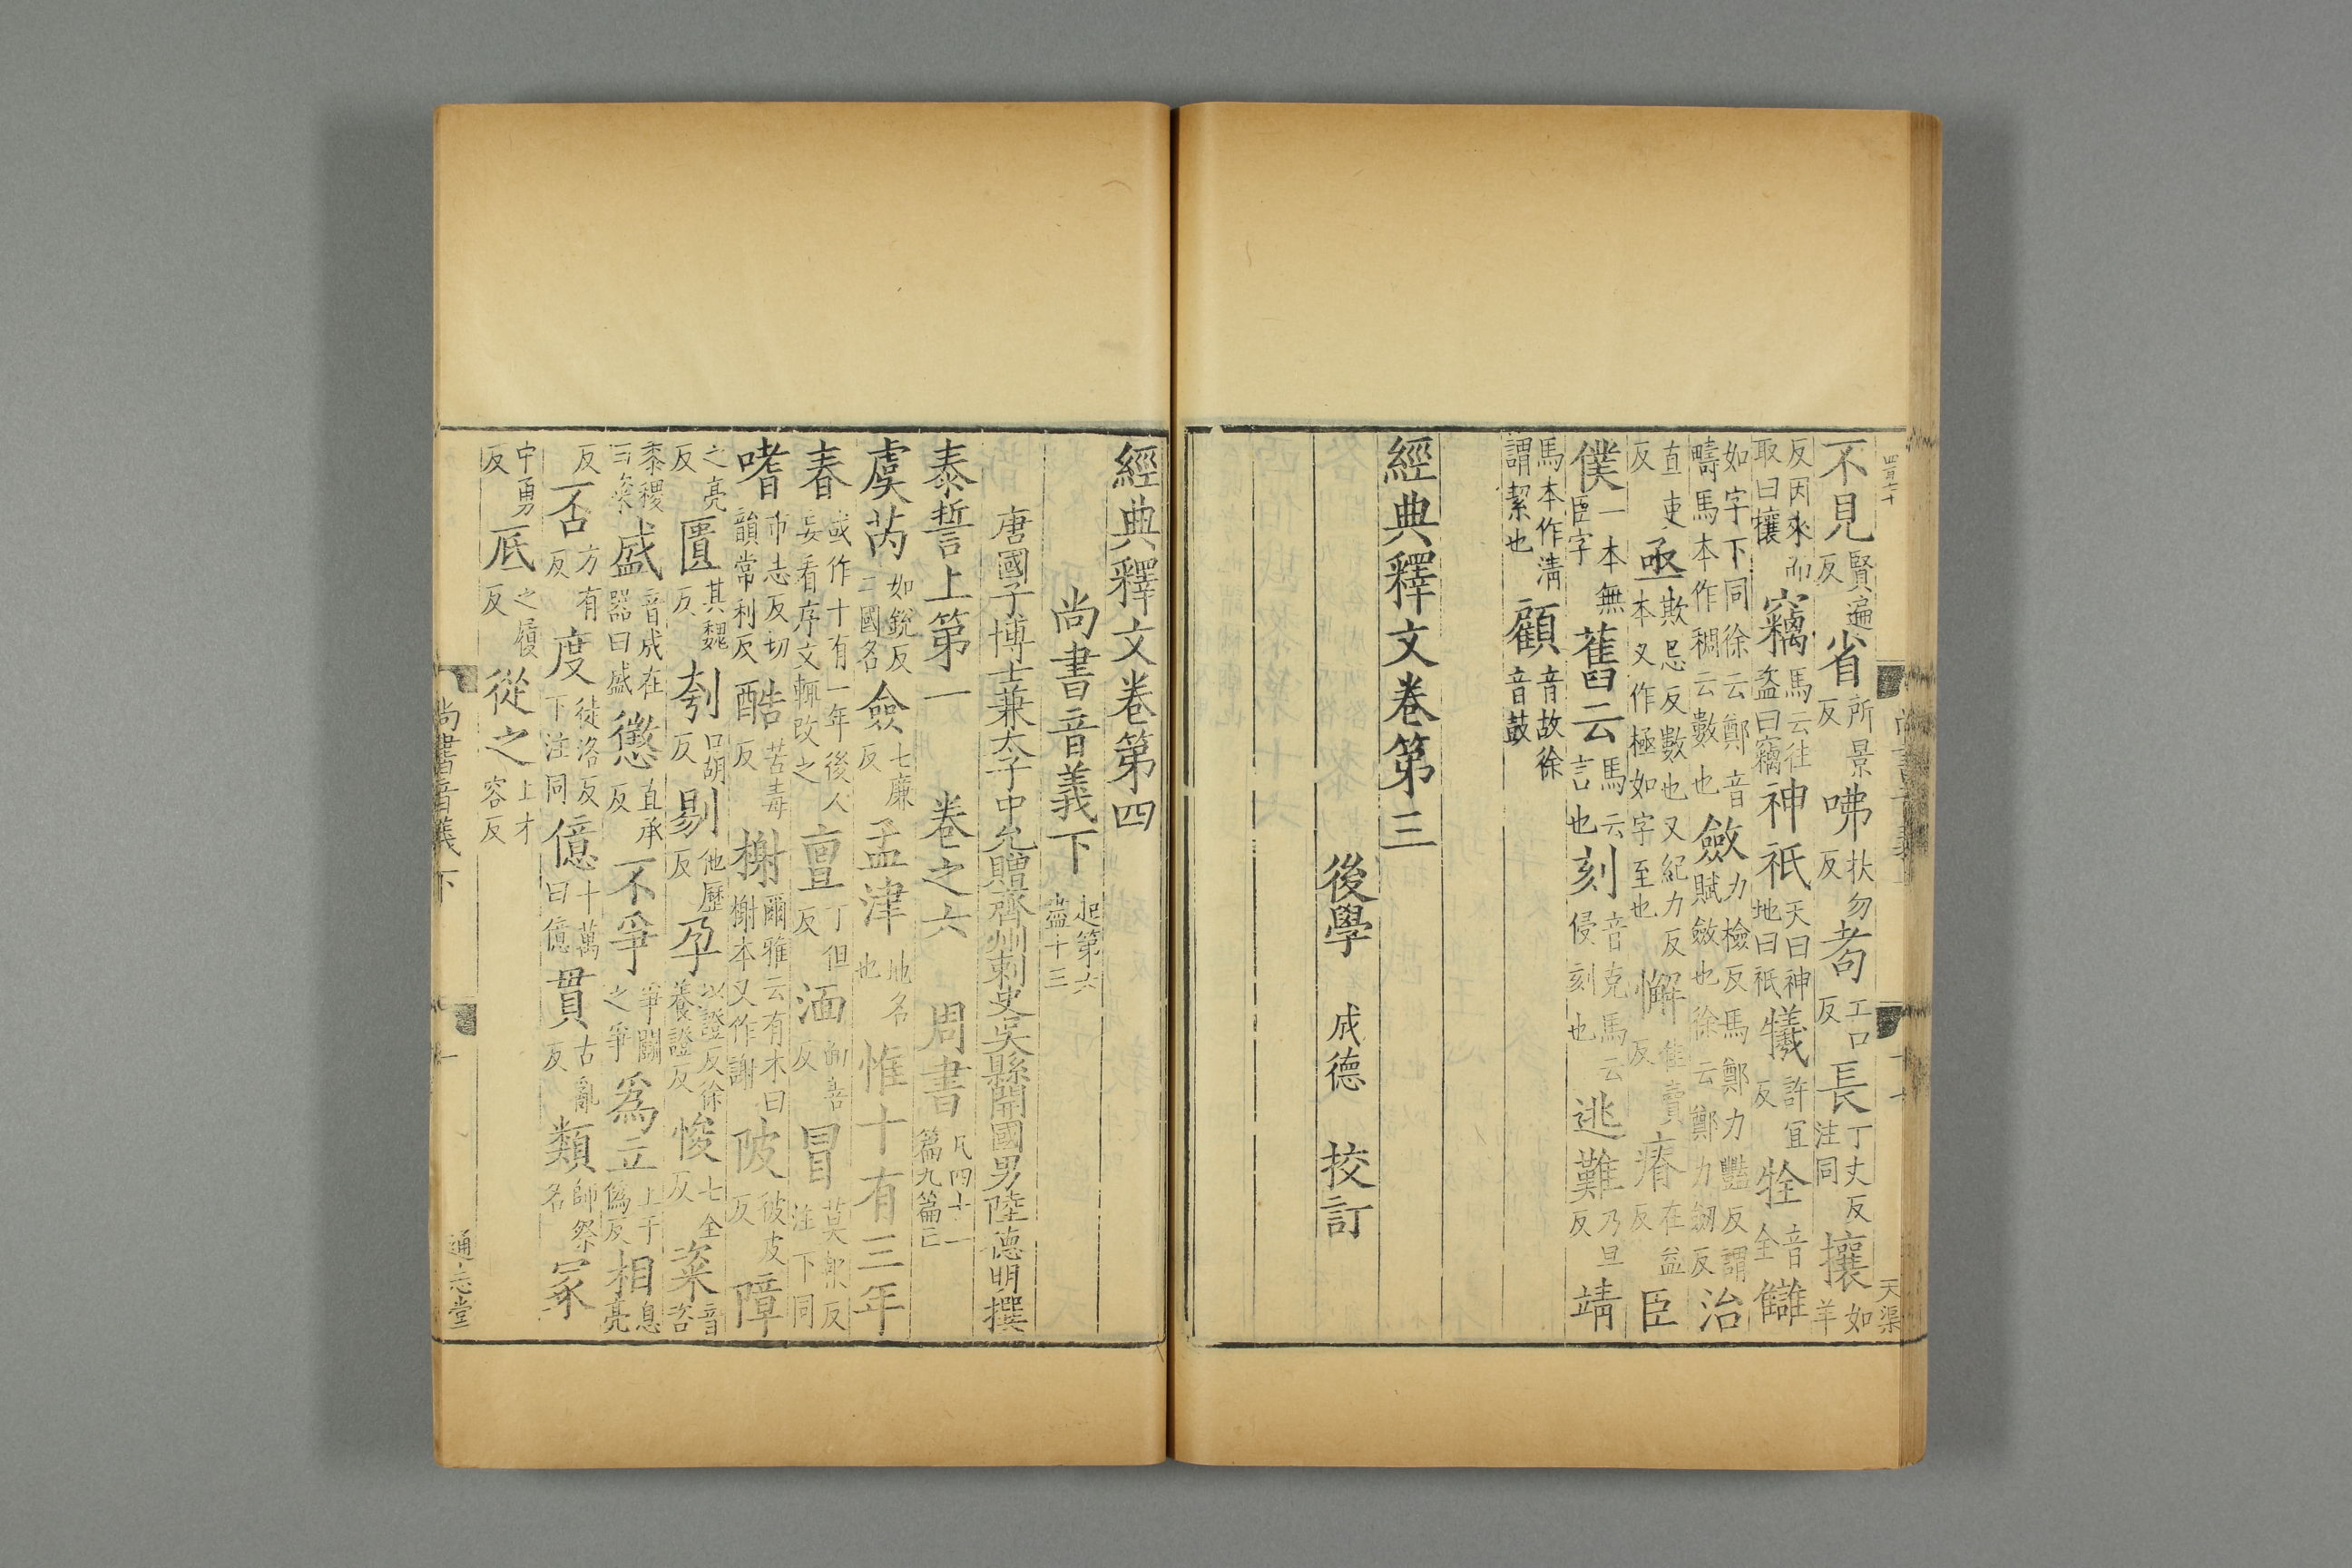 不見賢遍反省所景反咈扶勿反耉工口反長丁丈反注同攘如羊
反因來而取曰攘竊馬云往盜曰竊神祇天曰神地曰祇犧許宜反牷音全讎
如字下同徐云鄭音疇馬本作稠云數也斂力檢反馬鄭力豔反謂賦斂也徐云鄭力劒反治
直吏反亟欺忌反數也又紀力反本又作極如字至也懈佳賣反瘠在益反臣
僕一本無臣字舊云馬云言也刻音克馬云侵刻也逃難乃旦反靖
馬本作清謂絜也顧音故徐音鼓
經典釋文卷第三
後學 成德 挍訂
經典釋文卷第四
尚書音義下起第六盡十三
唐國子博士兼太子中允贈齊州刺史吳縣開國男陸德明撰
泰誓上第一 卷之六 周書凡四十一篇九篇亡
虞芮如銳反二國名僉七廉反孟津地名也惟十有三年
春或作十有一年後人妄看序文輒改之亶丁但反湎面善反冒莫報反注下同
嗜市志反切韻常利反酷苦毒反榭爾雅云有木曰榭本又作謝陂彼皮反障
之亮反匱其魏反刳口胡反剔他歷反孕以證反徐養證反悛七全反粢音咨
黍稷曰粢盛音成在器曰盛懲直承反不爭爭鬬之爭爲立上于僞反相息亮
反否方有反度徒洛反下注同億十萬曰億貫古亂反類師祭名冢
中勇反厎之履反從之上才容反
尚書音義下
一
通志堂